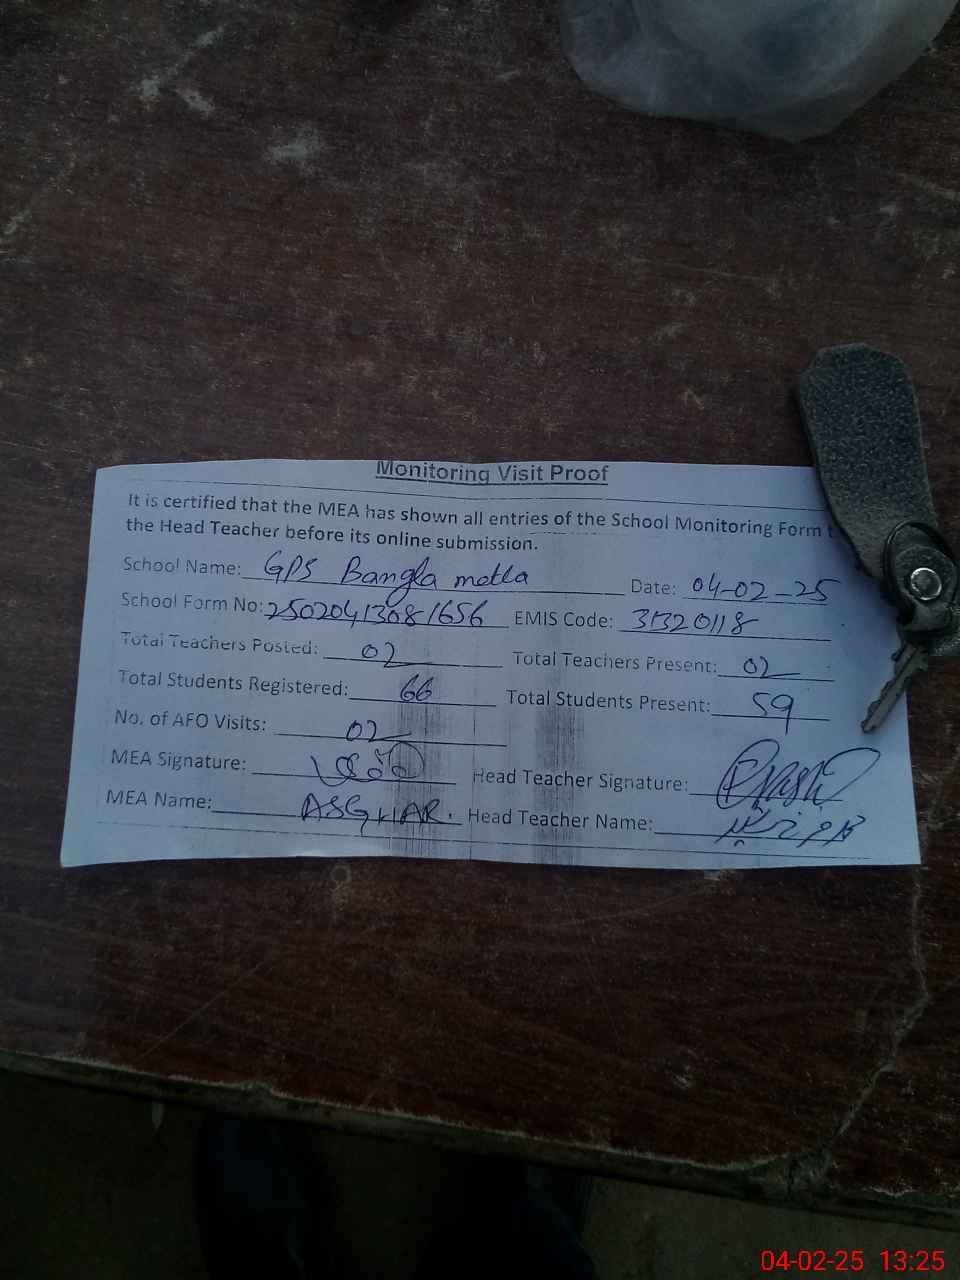 Monitoring Visit Proof
It is certified that the MEA has shown all entries of the School Monitoring Form t
the Head Teacher before its online submission.
School Name: GPS Bangla motla Date: 04-02-25
School Form No: 25020413081656 EMIS Code: 31320118
Total Teachers Posted: 02 Total Teachers Present: 02
Total Students Registered: 66 Total Students Present: 59
No. of AFO Visits: 02
MEA Signature: Head Teacher Signature:
MEA Name: ASGHAR. Head Teacher Name:
04-02-25 13:25